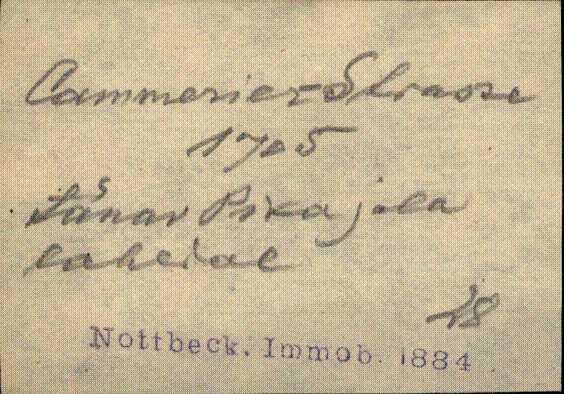 Cammerier Strasse
1705
tänav Pika jala
lahedal
28
Nottbeck. Immob. 1884